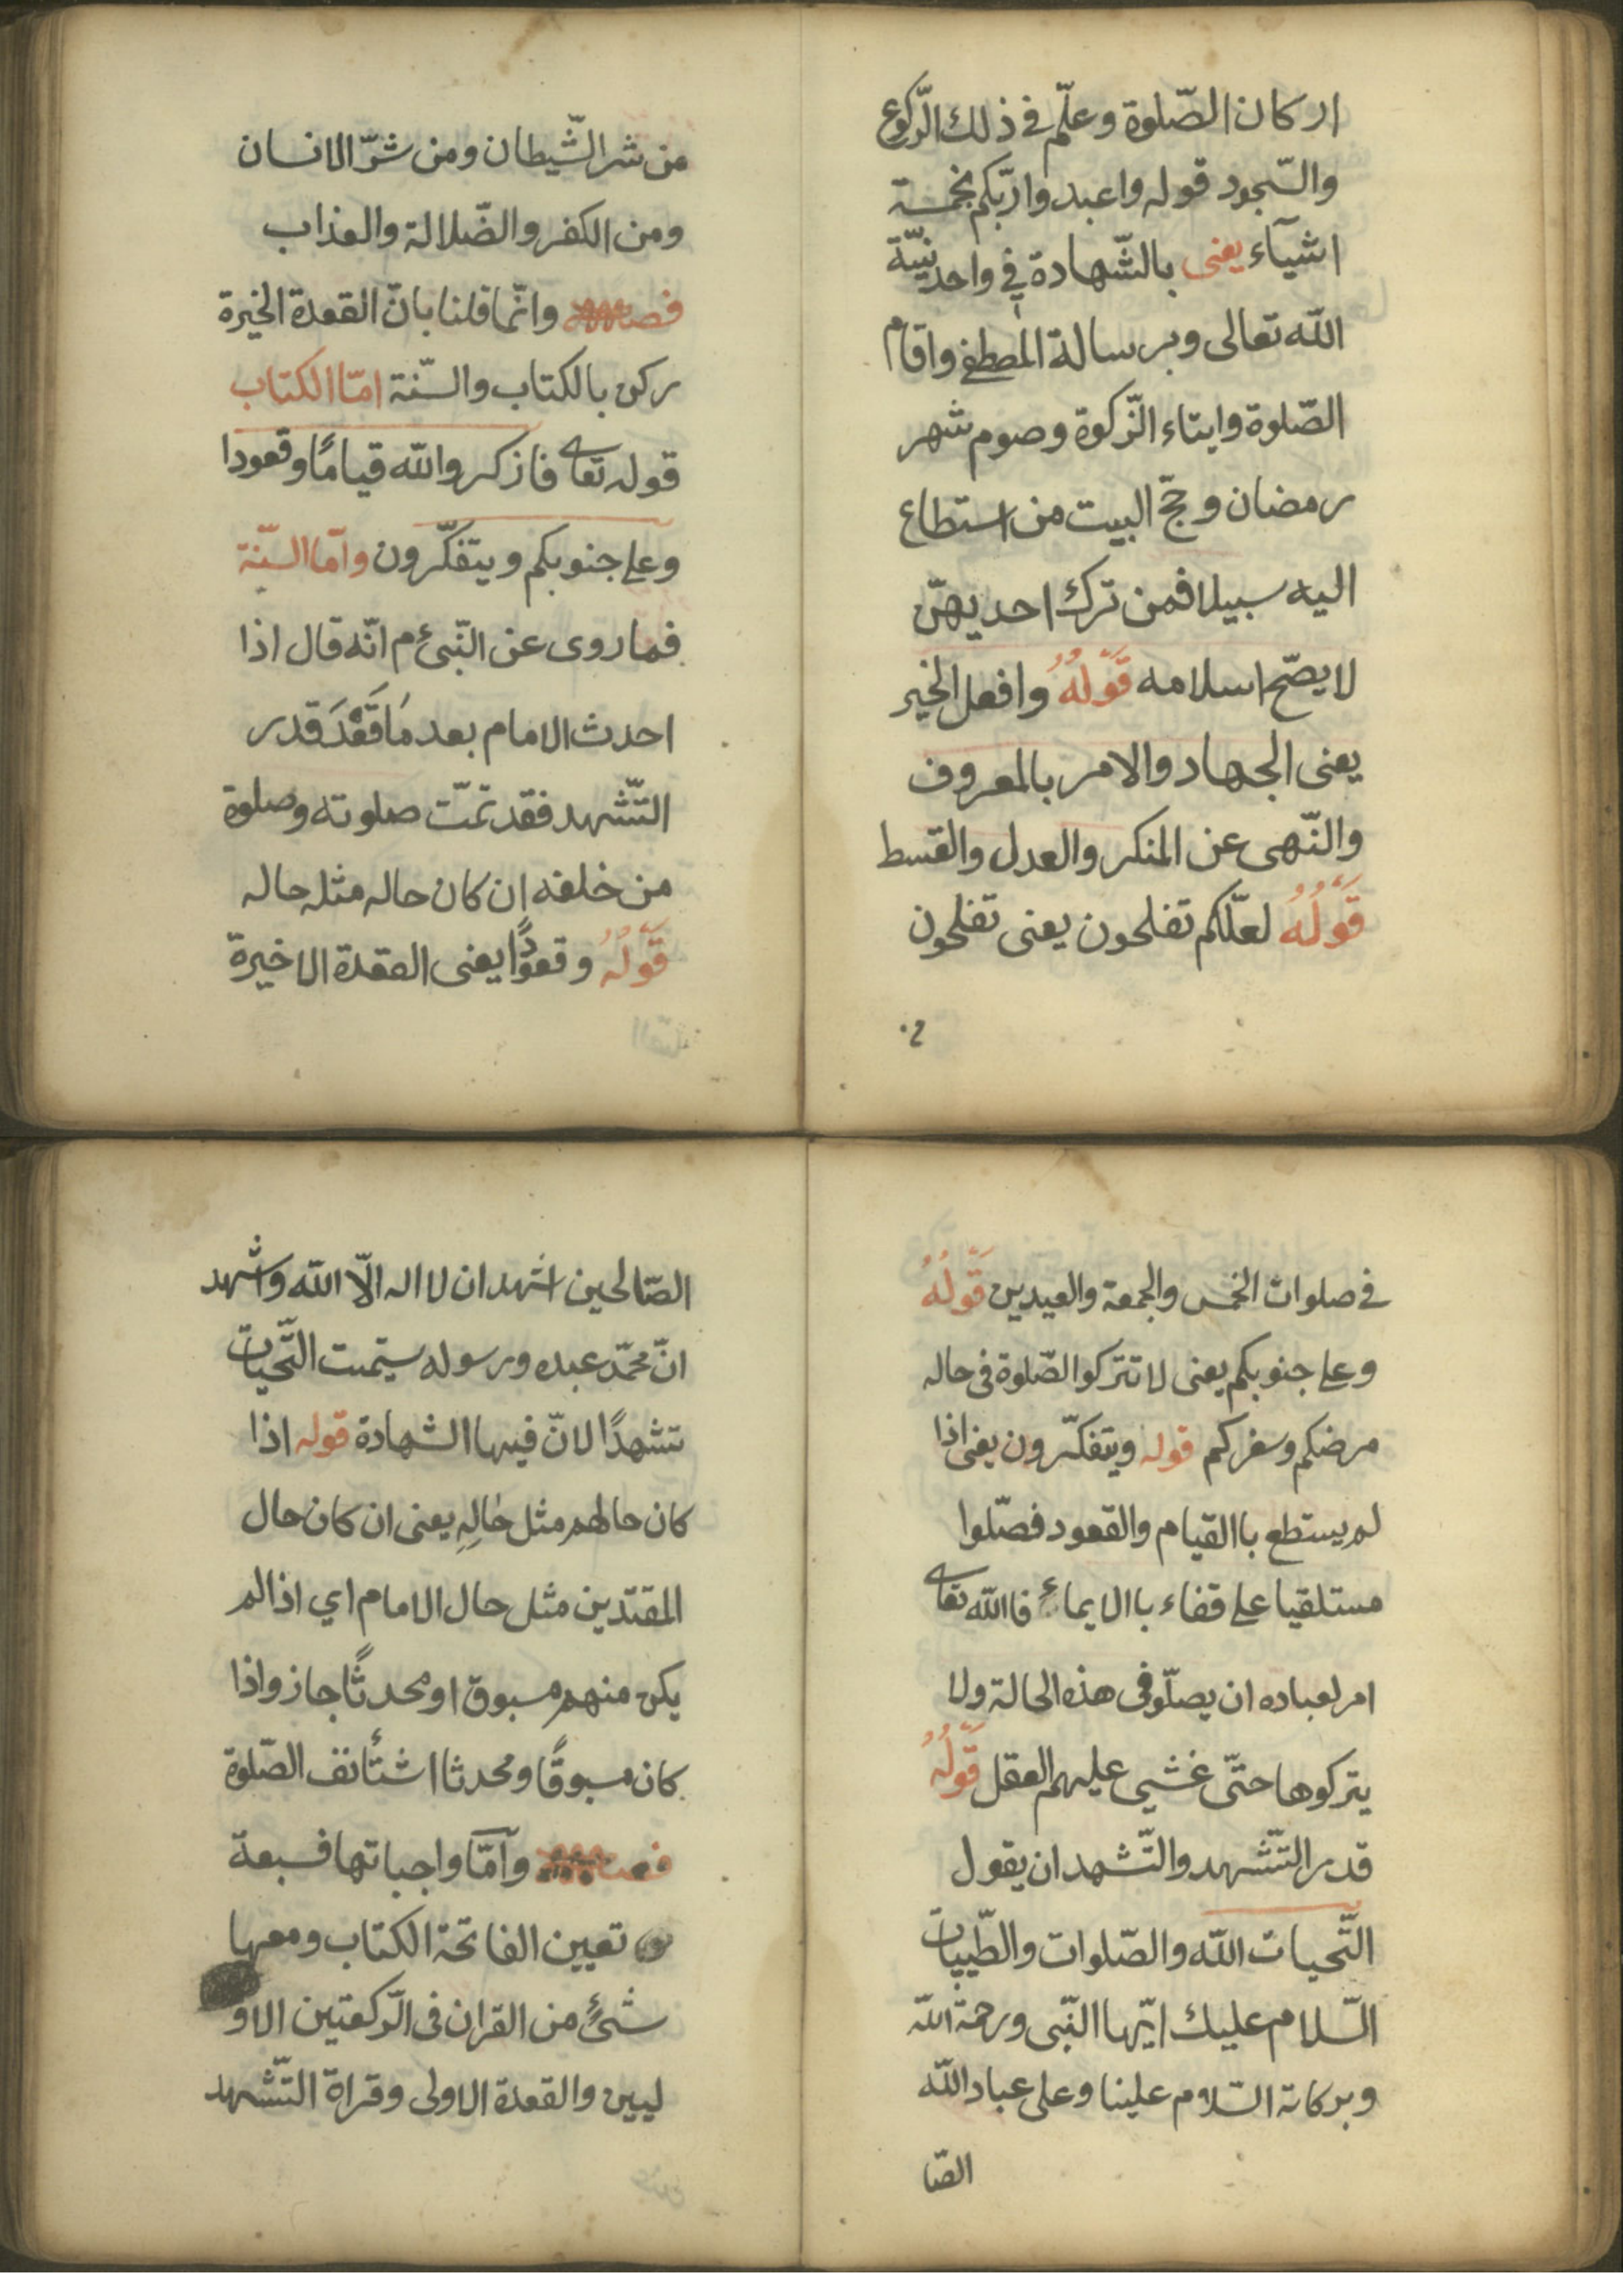 اركان الصّلوة وعلّم في ذلك الرّكوع
والسّجود قوله واعبدوا ربّكم بخمسة
اشيآء يعنى بالشّهادة في واحدنيّة
الله تعالى وبرسالة المصطفى واقام
الصّلوة وايتاء الزّكوة وصوم شهر
رمضان وحجّ البيت من استطاع
اليه سبيلا فمن ترك احديهنّ
لا يصّح اسلامه قَوْلُهُ وافعل الخير
يعنى الجهاد والامر بالمعروف
والنّهى عن المنكر والعدل والقسط
قَوْلُهُ لعلّكم تفلحون يعنى تفلحون
من شر الشّيطان ومن شرّ الانسان
ومن الكفر والضّلالة والعذاب
فصل وانّما قلنا بانّ القعدة الخيرة
ركن بالكتاب والسّنة امّا الكتاب
قوله تعالى فاذكروا الله قيامًا وقعودا
وعلى جنوبكم ويتفكّرون وآما السّنة
فما روى عن النّبىّ م انّه قال اذا
احدث الامام بعد مَا قَعَدَ قدر
التّشهد فقد تمّت صلوته وصلوة
من خلفه ان كان حاله مثله حاله
قَوْلُهُ وقعودًا يعنى العقدة الاخيرة
في صلوات الخمس والجمعة والعيدين قَوْلُهُ
وعلى جنوبكم يعنى لا تتركوا الصّلوة في حاله
مرضكم وسفركم قوله ويتفكّرون يعنى اذا
لم يستطع باالقيام والقعود فصّلوا
مستلقيا على قفاء باالايماء فاالله تعالى
امر لعباده ان يصلّو في هذه الحالة ولا
يتركوها حتّى غشي عليهم العقل قَوْلُهُ
قدر التّشهد والتّشهد ان يقول
التّحيات الله والصّلوات والطّيبات
السّلام عليك ايّها النّبى ورحمة الله
وبركاته السّلام علينا وعلى عباد الله
الصّا
الصّالحين اشهد ان لا اله الّا الله واشهد
انّ محمّد عبده ورسوله ستّميت التّحيات
تشهدًا لانّ فيها الشهادة قوله اذا
كان حالهم مثل حَالِهِ يعنى ان كان حال
المقتدّين مثل حال الامام اي اذا لم
يكن منهم مسبوق او محدثًا جاز واذا
كان مسبوقًا ومحدثا اشتأنف الصّلوة
فصل وآمّا واجباتها فسبعة
تعيين الفاتحة الكتاب ومعها
شئ من القران في الرّكعتين الاو
ليين والقعدة الاولى وقراة التّشهد